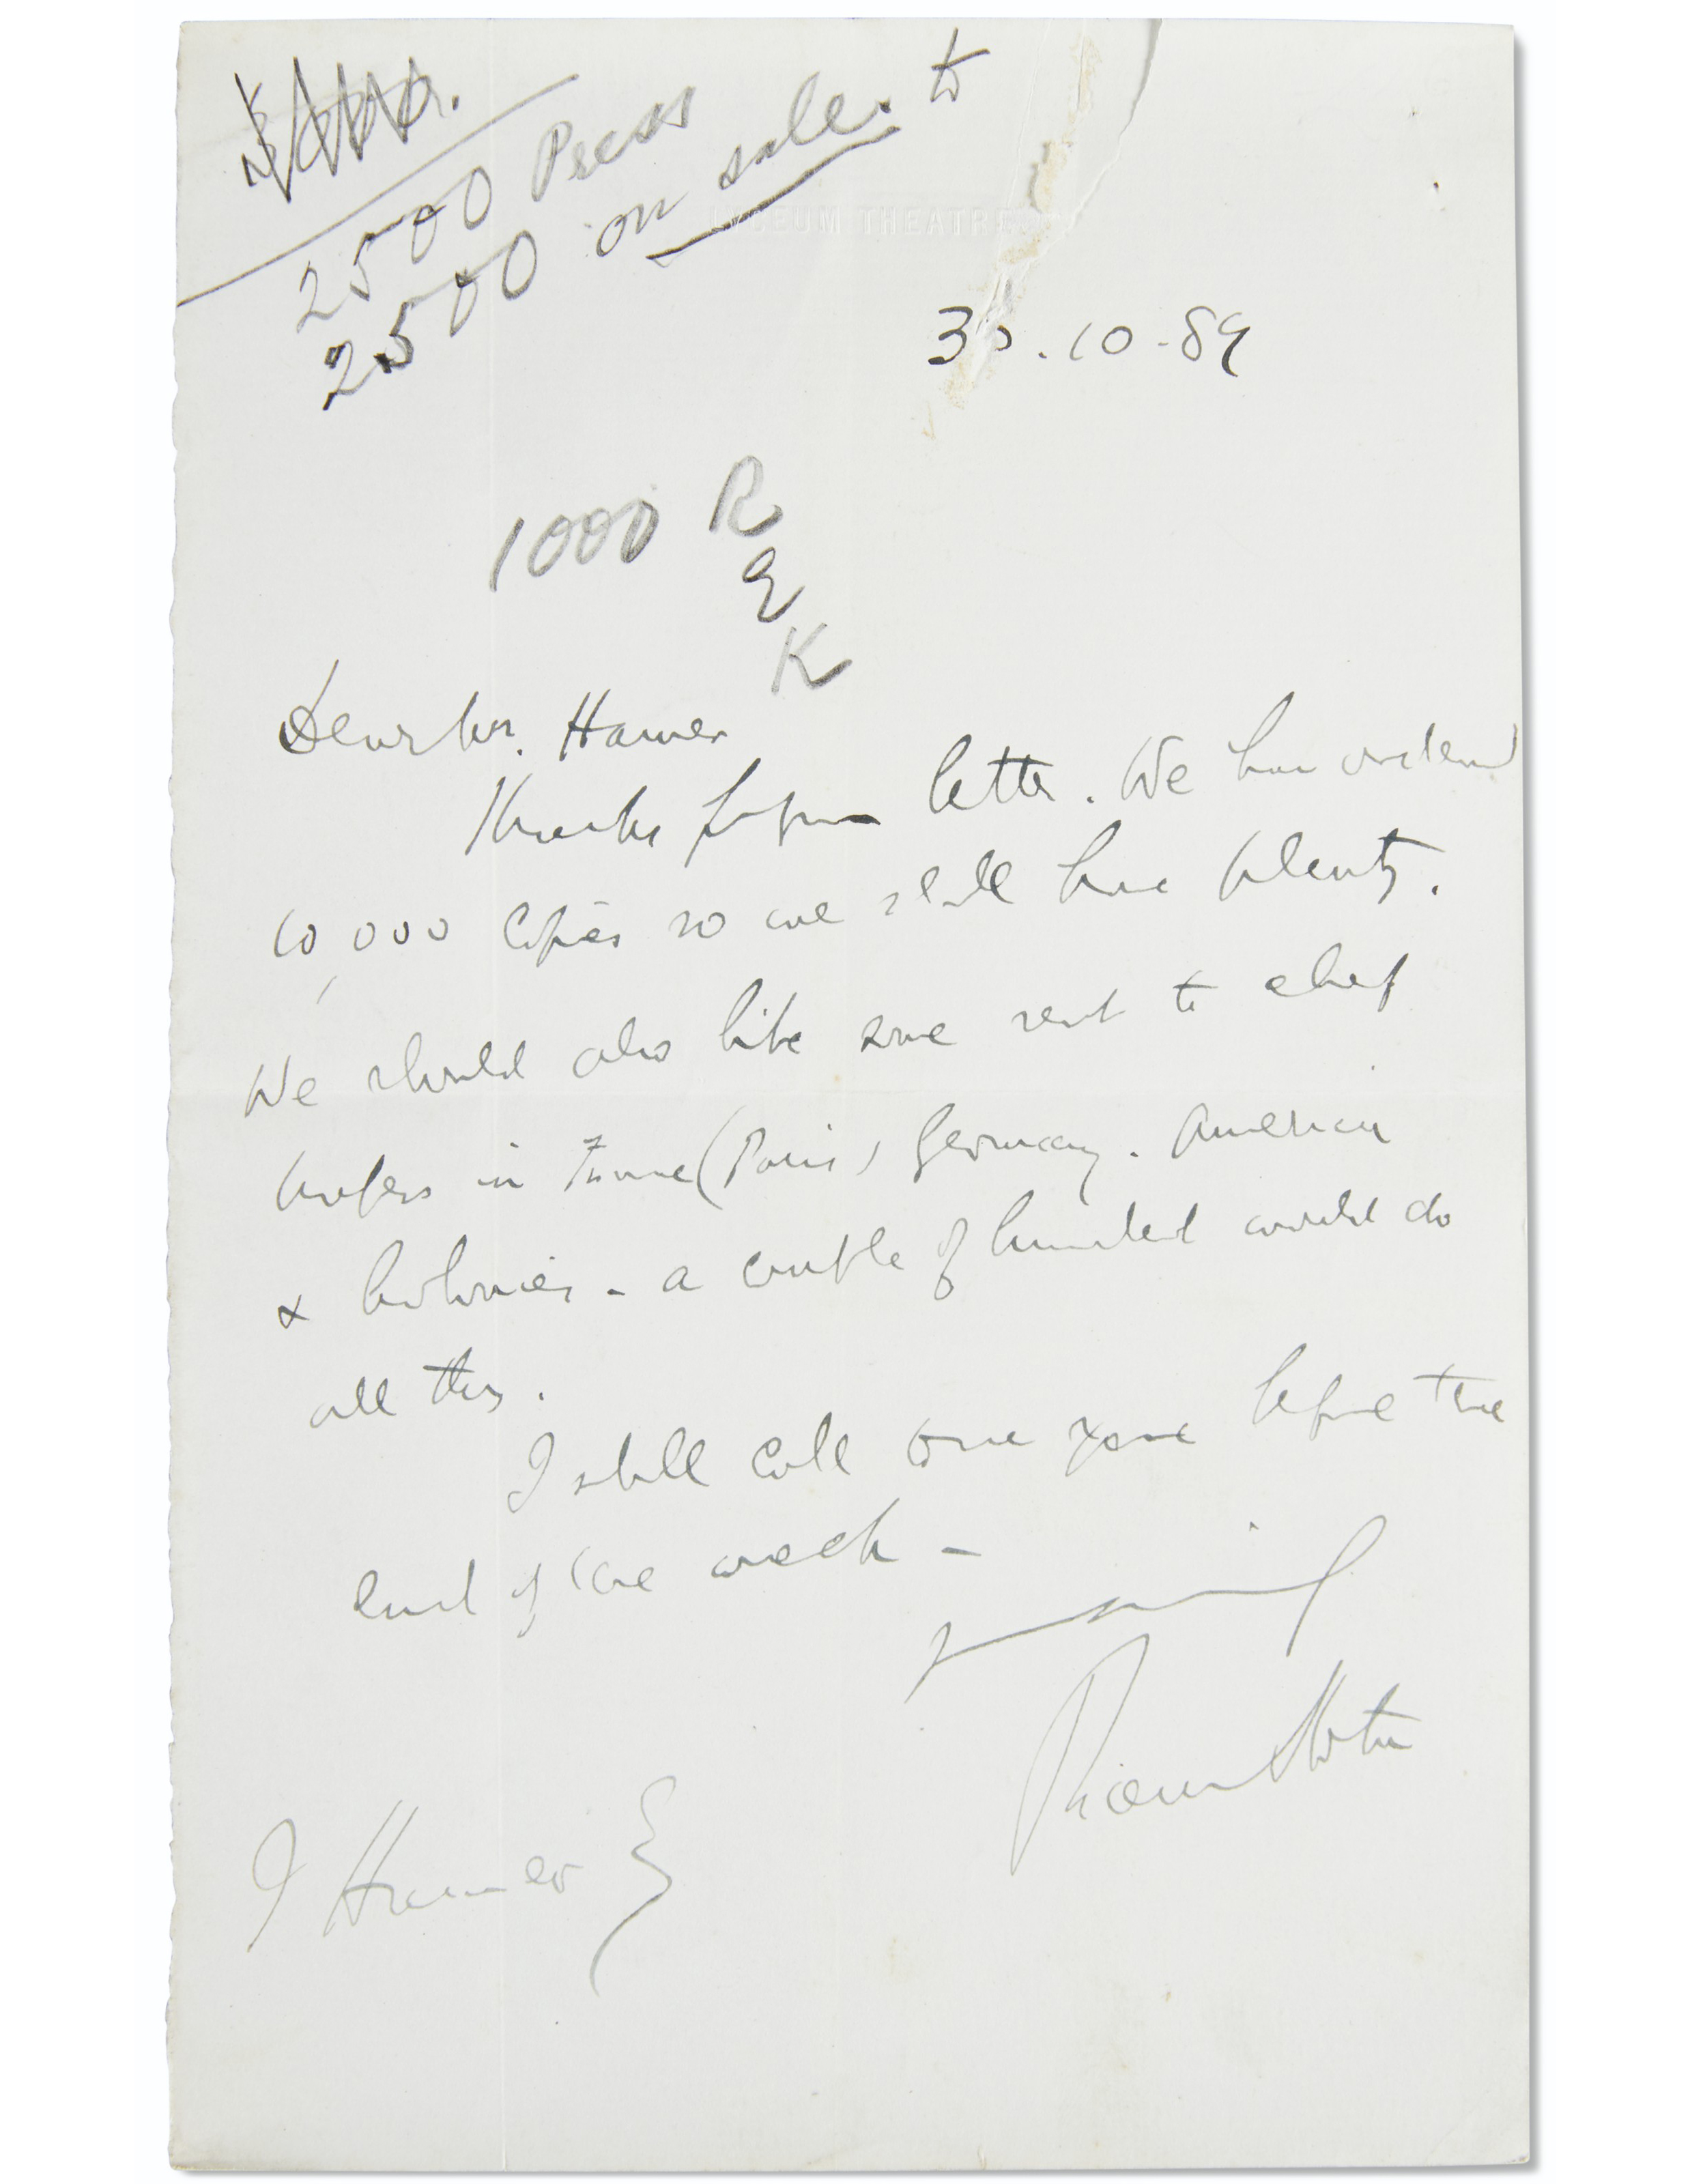 2500 Press
2500 on sale to
LYCEUM THEATRE
30.10.89
1000 R
&
K
Dear Mr. Hamer
Thanks for your letter. We have ordered
10,000 copies so we shall have plenty.
We should also like some sent to chief
papers in France (Paris) Germany. America
& Colonies - a couple of hundred would do
all this.
I shall call some before the
end of the week -
Bram Stoker
J Hamer Esq